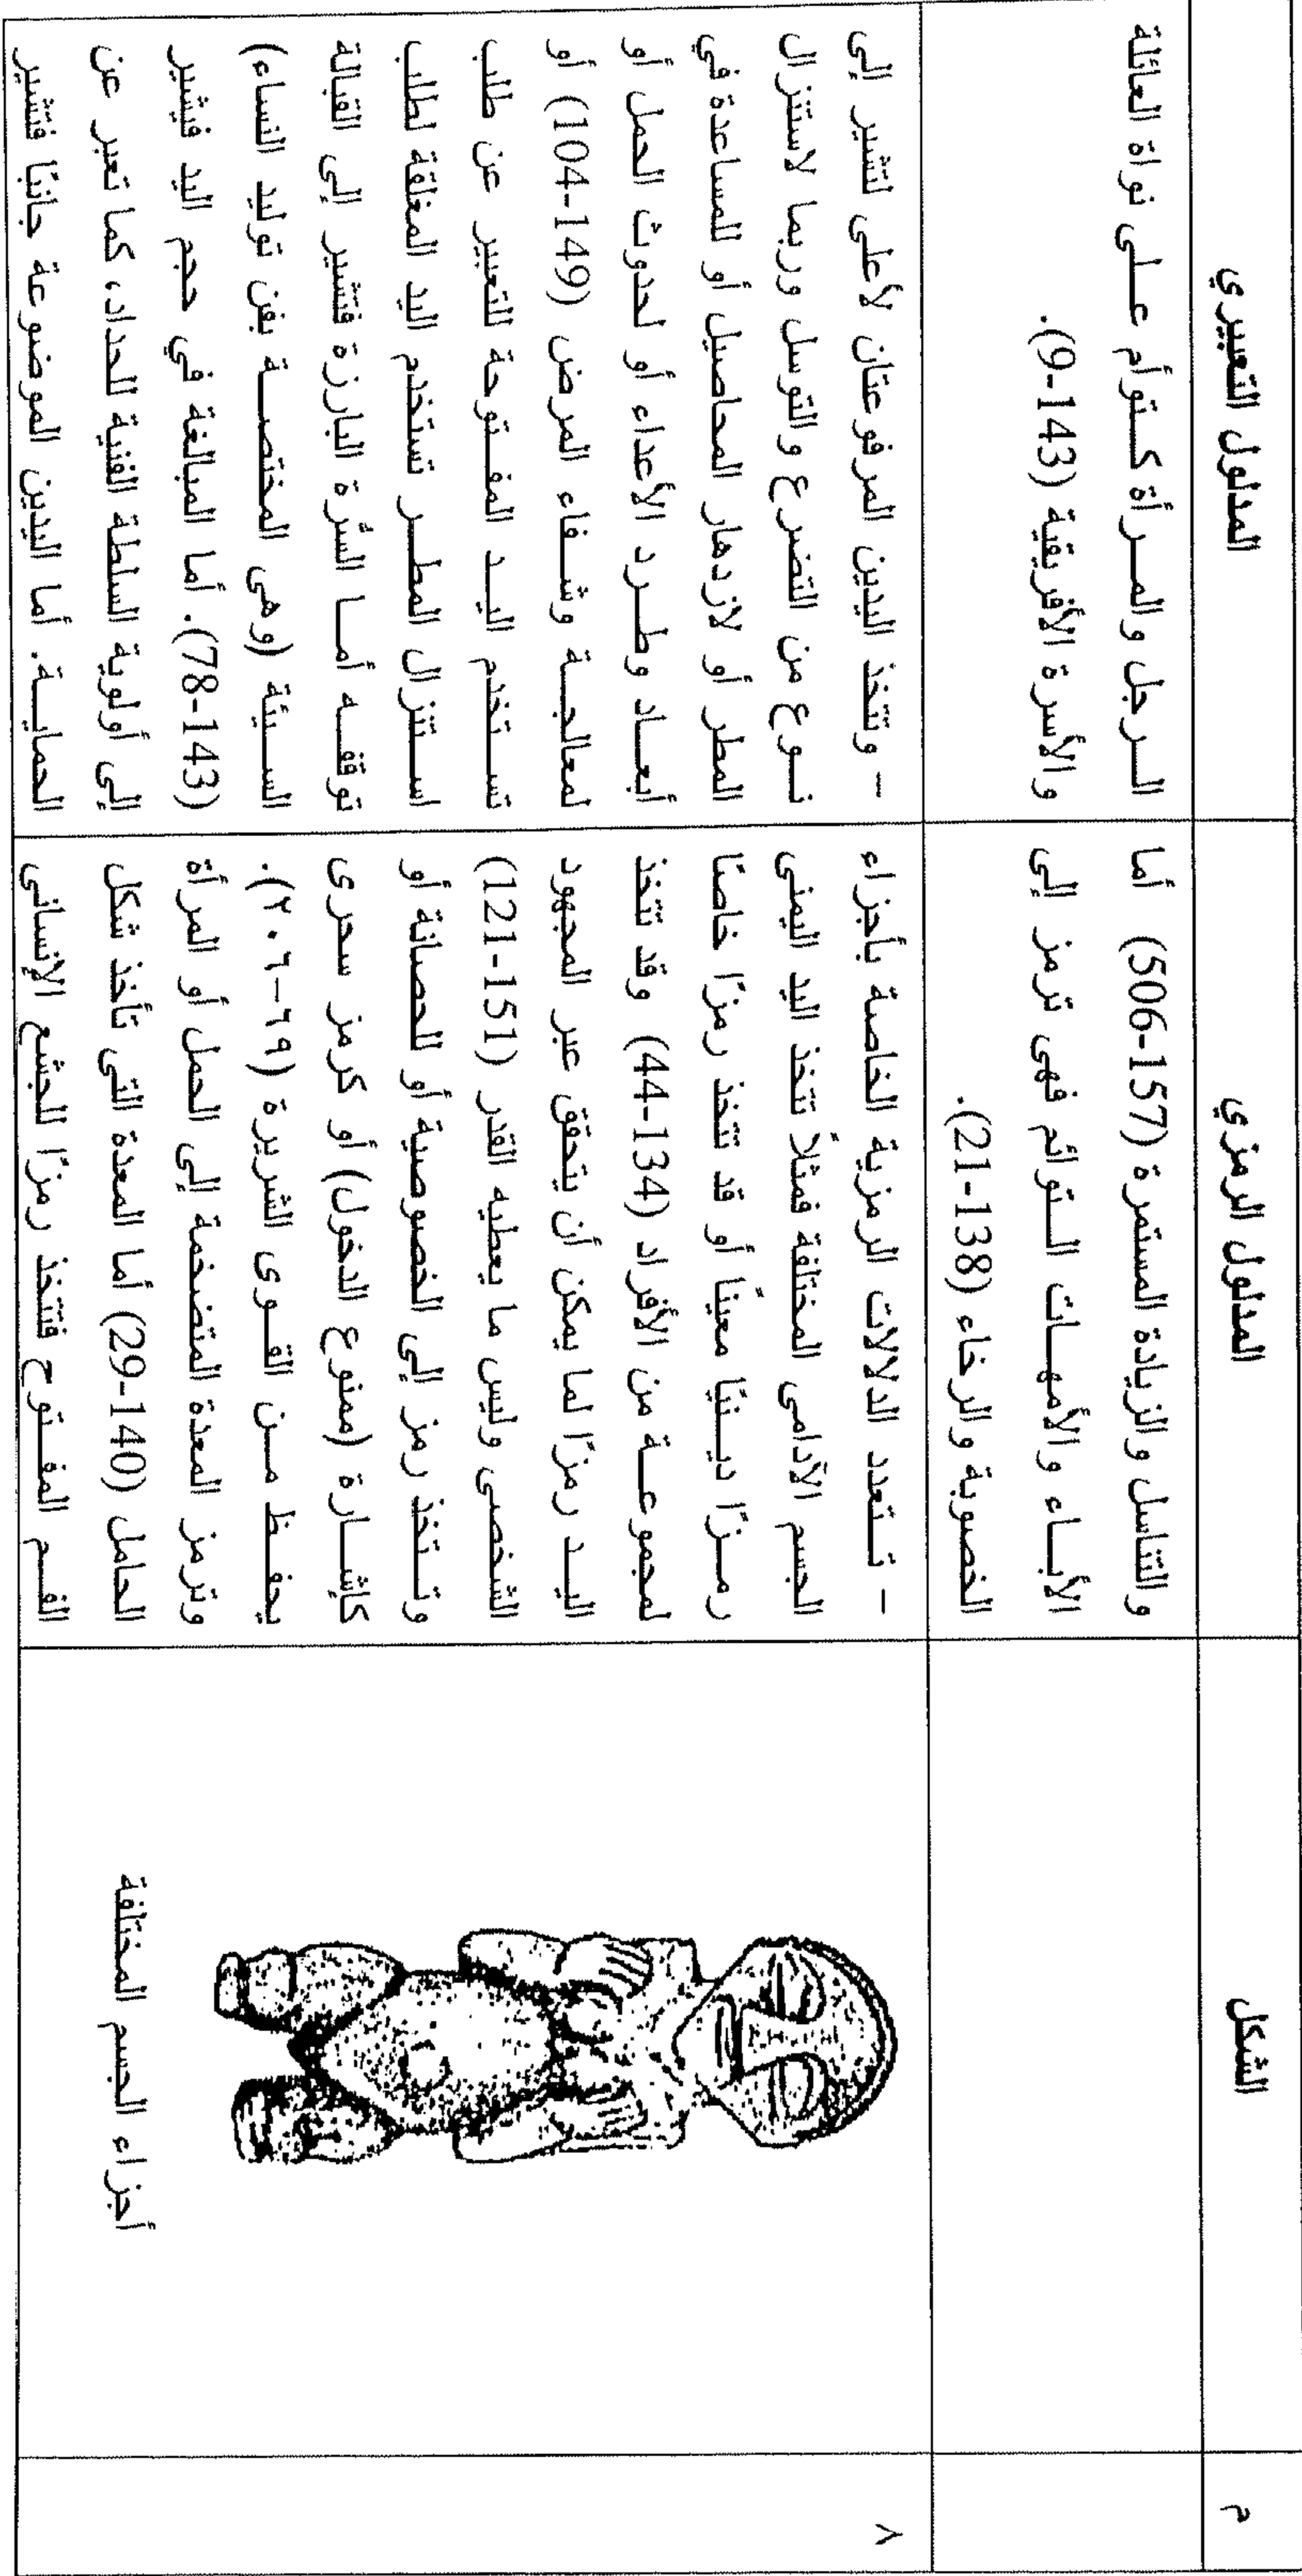 م
الشكل
المدلول الرمزي
المدلول التعبيري
والتناسل والزيادة المستمرة (157-506) أما
الأبـاء والأمهـات الـتوائم فهى ترمز إلى
الخصوبة والرخاء (138-21).
الـرجل والمـرأة كـتوأم عـلى نواة العائلة
والأسرة الأفريقية (143-9).
٨
أجزاء الجسم المختلفة
- تـتعدد الدلالات الرمزية الخاصة بأجزاء
الجسم الآدامى المختلفة فمثلاً تتخذ اليد اليمنى
رمـزًا ديـنيًا معينًا أو قد تتخذ رمزًا خاصًا
لمجموعـة من الأفراد (134-44) وقد تتخذ
اليـد رمزًا لما يمكن أن يتحقق عبر المجهود
الشخصى وليس ما يعطيه القدر (151-121)
وتـتخذ رمز إلى الخصوصية أو للحصانة أو
كإشـارة (ممنوع الدخول) أو كرمز سحرى
يحفـظ مـن القـوى الشريرة (٦٩-٢٠٦).
وترمز المعدة المتضخمة إلى الحمل أو المرأة
الحامل (140-29) أما المعدة التى تأخذ شكل
الفـم المفـتوح فتتخذ رمزًا للجشع الإنسانى
- وتتخذ اليدين المرفوعتان لأعلى لتشير إلى
نـوع من التضرع والتوسل وربما لاستنزال
المطر أو لازدهار المحاصيل أو للمساعدة في
أبعـاد وطـرد الأعداء أو لحدوث الحمل أو
لمعالجـة وشـفاء المرض (149-104) أو
تسـتخدم اليـد المفـتوحة للتعبير عن طلب
اسـتنزال المطـر تستخدم اليد المغلقة لطلب
توقفـه أمـا السُرة البارزة فتشير إلى القبالة
السـيئة (وهى المختصـة بفن توليد النساء)
(143-78). أما المبالغة في حجم اليد فيشير
إلى أولوية السلطة الفنية للحداد، كما تعبر عن
الحمايـة. أما اليدين الموضوعة جانبًا فتشير